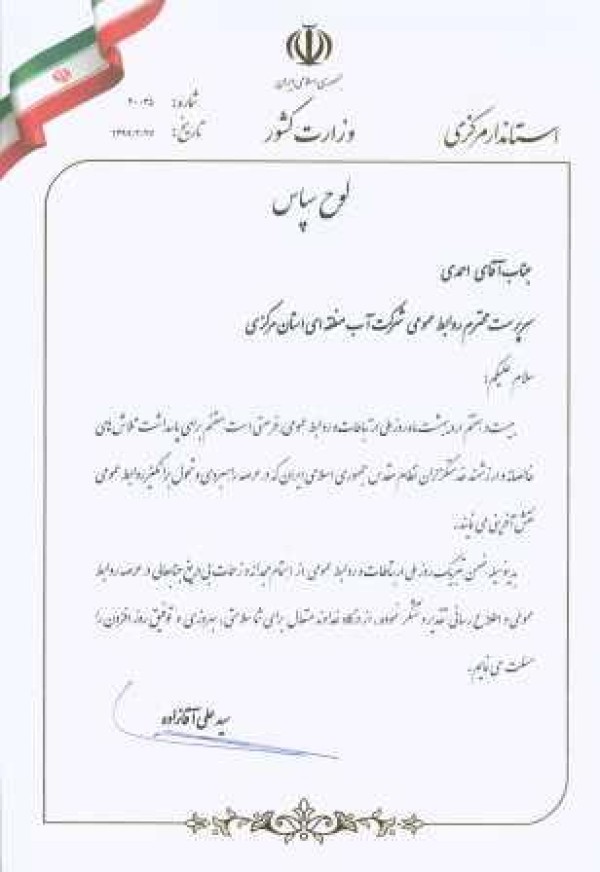 جمهوری اسلامی ایران
شماره: ۲۰۰۳۵
تاریخ: ۱۳۹۷/۲/۲۷
وزارت کشور
استاندار مرکزی
لوح سپاس
جناب آقای احمدی
سرپرست محترم روابط عمومی شرکت آب منطقه ای استان مرکزی
سلام علیکم؛
بیست و هفتم اردیبهشت ماه روز ملی ارتباطات و روابط عمومی، فرصتی است مغتنم برای پاسداشت تلاش های
خالصانه و ارزشمند خدمتگزاران نظام مقدس جمهوری اسلامی ایران که در عرصه راهبردی و تحول برانگیز روابط عمومی
نقش آفرینی می نمایند.
بدینوسیله ضمن تبریک روز ملی ارتباطات و روابط عمومی از اهتمام مجدانه و زحمات بی دریغ جنابعالی در عرصه روابط
عمومی و اطلاع رسانی تقدیر و تشکر نموده، از درگاه خداوند متعال برای شما سلامتی، بهروزی و توفیق روز افزون را
مسئلت می نمایم.
سید علی آقازاده